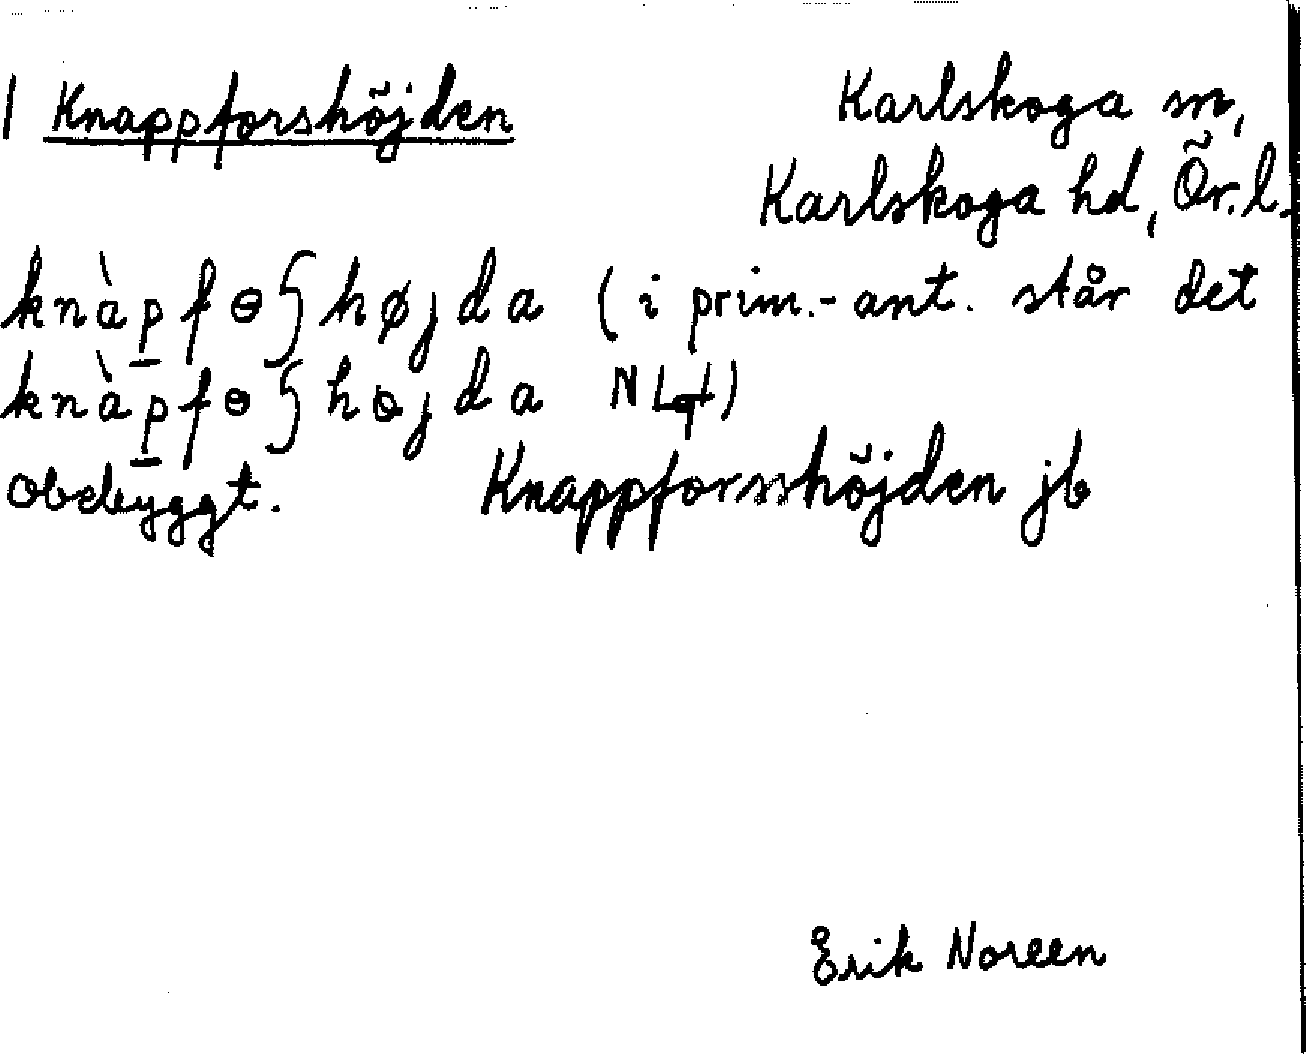 | Knappforshöjden
Karlskoga sn,
Karlskoga hd, Ör. l.
knàp̱fɵʃhøjda (i prim.-ant. står det
knàp̱fɵʃhɵjda
Obebyggt. Knappforsshöjden jb
Erik Noreen